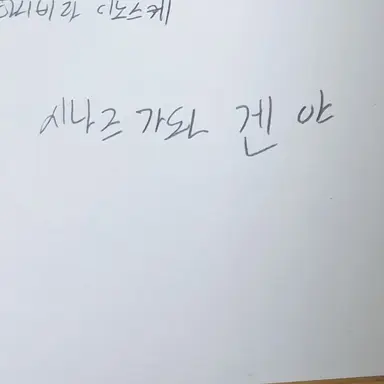 이노스케
시나즈가와 겐야